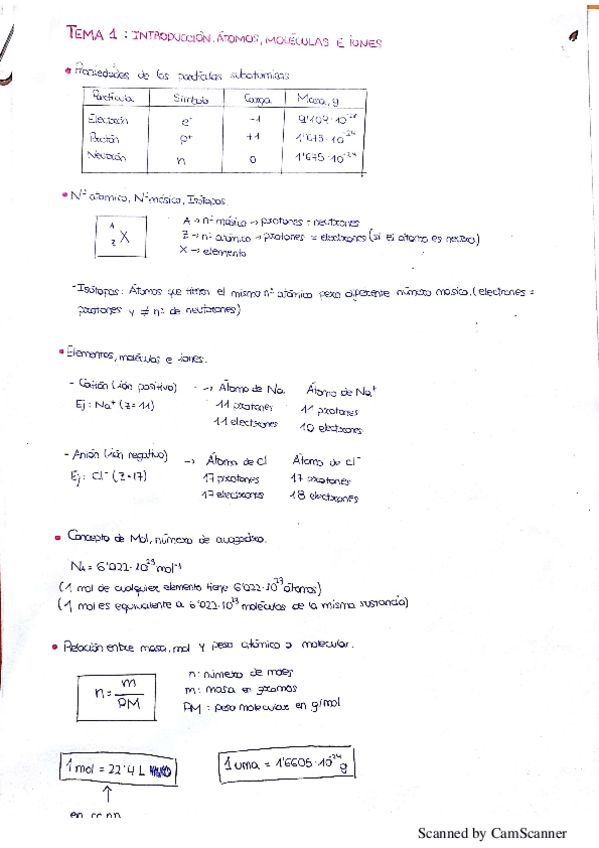 TEMA 1: INTRODUCCIÓN. ÁTOMOS, MOLÉCULAS E IONES
• Propiedades de las partículas subatómicas
Partícula Símbolo Carga Masa, g
Electrón e⁻ -1 9'109·10⁻²⁸
Protón p⁺ +1 1'673·10⁻²⁴
Neutrón n 0 1'675·10⁻²⁴
• Nº atómico, Nº másico, Isótopos.
A Z X
A → nº másico → protones + neutrones
Z → nº atómico → protones = electrones (si el átomo es neutro)
X → elemento
- Isótopos: Átomos que tienen el mismo nº atómico pero diferente número másico. (electrones =
protones y ≠ nº de neutrones)
• Elementos, moléculas e iones.
- Catión (ión positivo) → Átomo de Na Átomo de Na⁺
Ej: Na⁺ (Z=11) 11 protones 11 protones
11 electrones 10 electrones
- Anión (ión negativo) → Átomo de Cl Átomo de Cl⁻
Ej: Cl⁻ (Z=17) 17 protones 17 protones
17 electrones 18 electrones
• Concepto de Mol, número de avogadro.
NA = 6'022·10²³ mol⁻¹
(1 mol de cualquier elemento tiene 6'022·10²³ átomos)
(1 mol es equivalente a 6'022·10²³ moléculas de la misma sustancia)
• Relación entre masa, mol y peso atómico o molecular.
n = m / PM
n: número de moles
m: masa en gramos
PM: peso molecular en g/mol
1 mol = 22'4 L
1 uma = 1'6605·10⁻²⁴ g
en cc.nn
Scanned by CamScanner